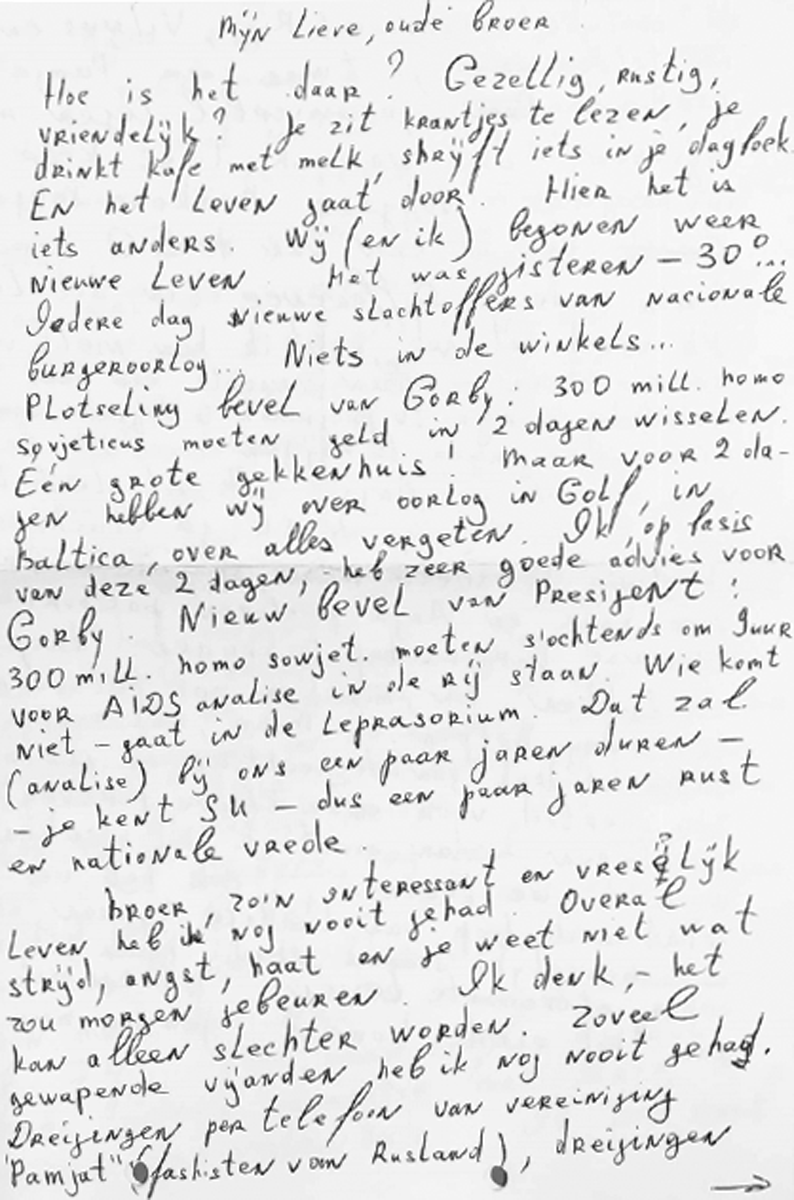 Mijn Lieve, oude broer.
Hoe is het daar? Gezellig, rustig,
vriendelijk? Je zit krantjes te lezen, je
drinkt kafe met melk, shrijft iets in je dagboek.
En het Leven gaat door. Hier het is
iets anders. Wij (en ik) begonen weer
nieuwe Leven. Het was gisteren – 30°...
Iedere dag nieuwe slachtoffers van nacionale
burgeroorlog... Niets in de winkels...
Plotseling bevel van Gorby: 300 mill. homo
sovjeticus moeten geld in 2 dagen wisselen.
Eén grote gekkenhuis! Maar voor 2 da-
gen hebben wij over oorlog in Golf, in
Baltica, over alles vergeten. Ik, op basis
van deze 2 dagen, heb zeer goede advies voor
Gorby. Nieuw bevel van Presijent:
300 mill. homo sowjet. moeten s'ochtends om 9uur
voor AIDS analise in de rij staan. Wie komt
niet – gaat in de Leprasorium. Dat zal
(analise) bij ons een paar jaren duren –
– je kent SU – dus een paar jaren rust
en nationale vrede.
broer, zo'n interessant en vreselijk
Leven heb ik nog nooit gehad. Overal
strijd, angst, haat en je weet niet wat
zou morgen gebeuren. Ik denk, – het
kan alleen slechter worden. Zoveel
gewapende vijanden heb ik nog nooit gehad.
Dreigingen per telefoon van vereiniging
"Pamjat" (fashisten van Rusland), dreigingen
→